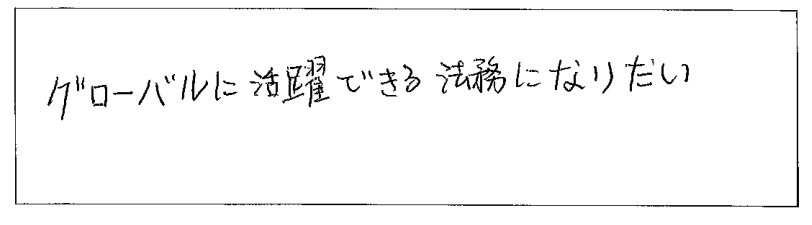 グローバルに活躍できる法務になりたい